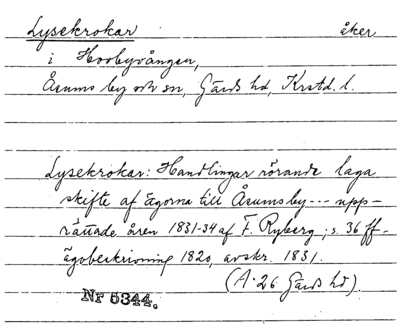 Lysekrokar åker
i Horbyvången,
Åsums by och sn, Gärds hd, Krstd. l.
Lysekrokar: Handlingar rörande laga
skifte af ägorna till Åsumsby --- upp-
rättade åren 1831-34 af F. Ryberg; s. 36 ff-
ägobeskrivning 1820, avskr. 1831.
(A. 26 Gärds hd)
Nr 5344.